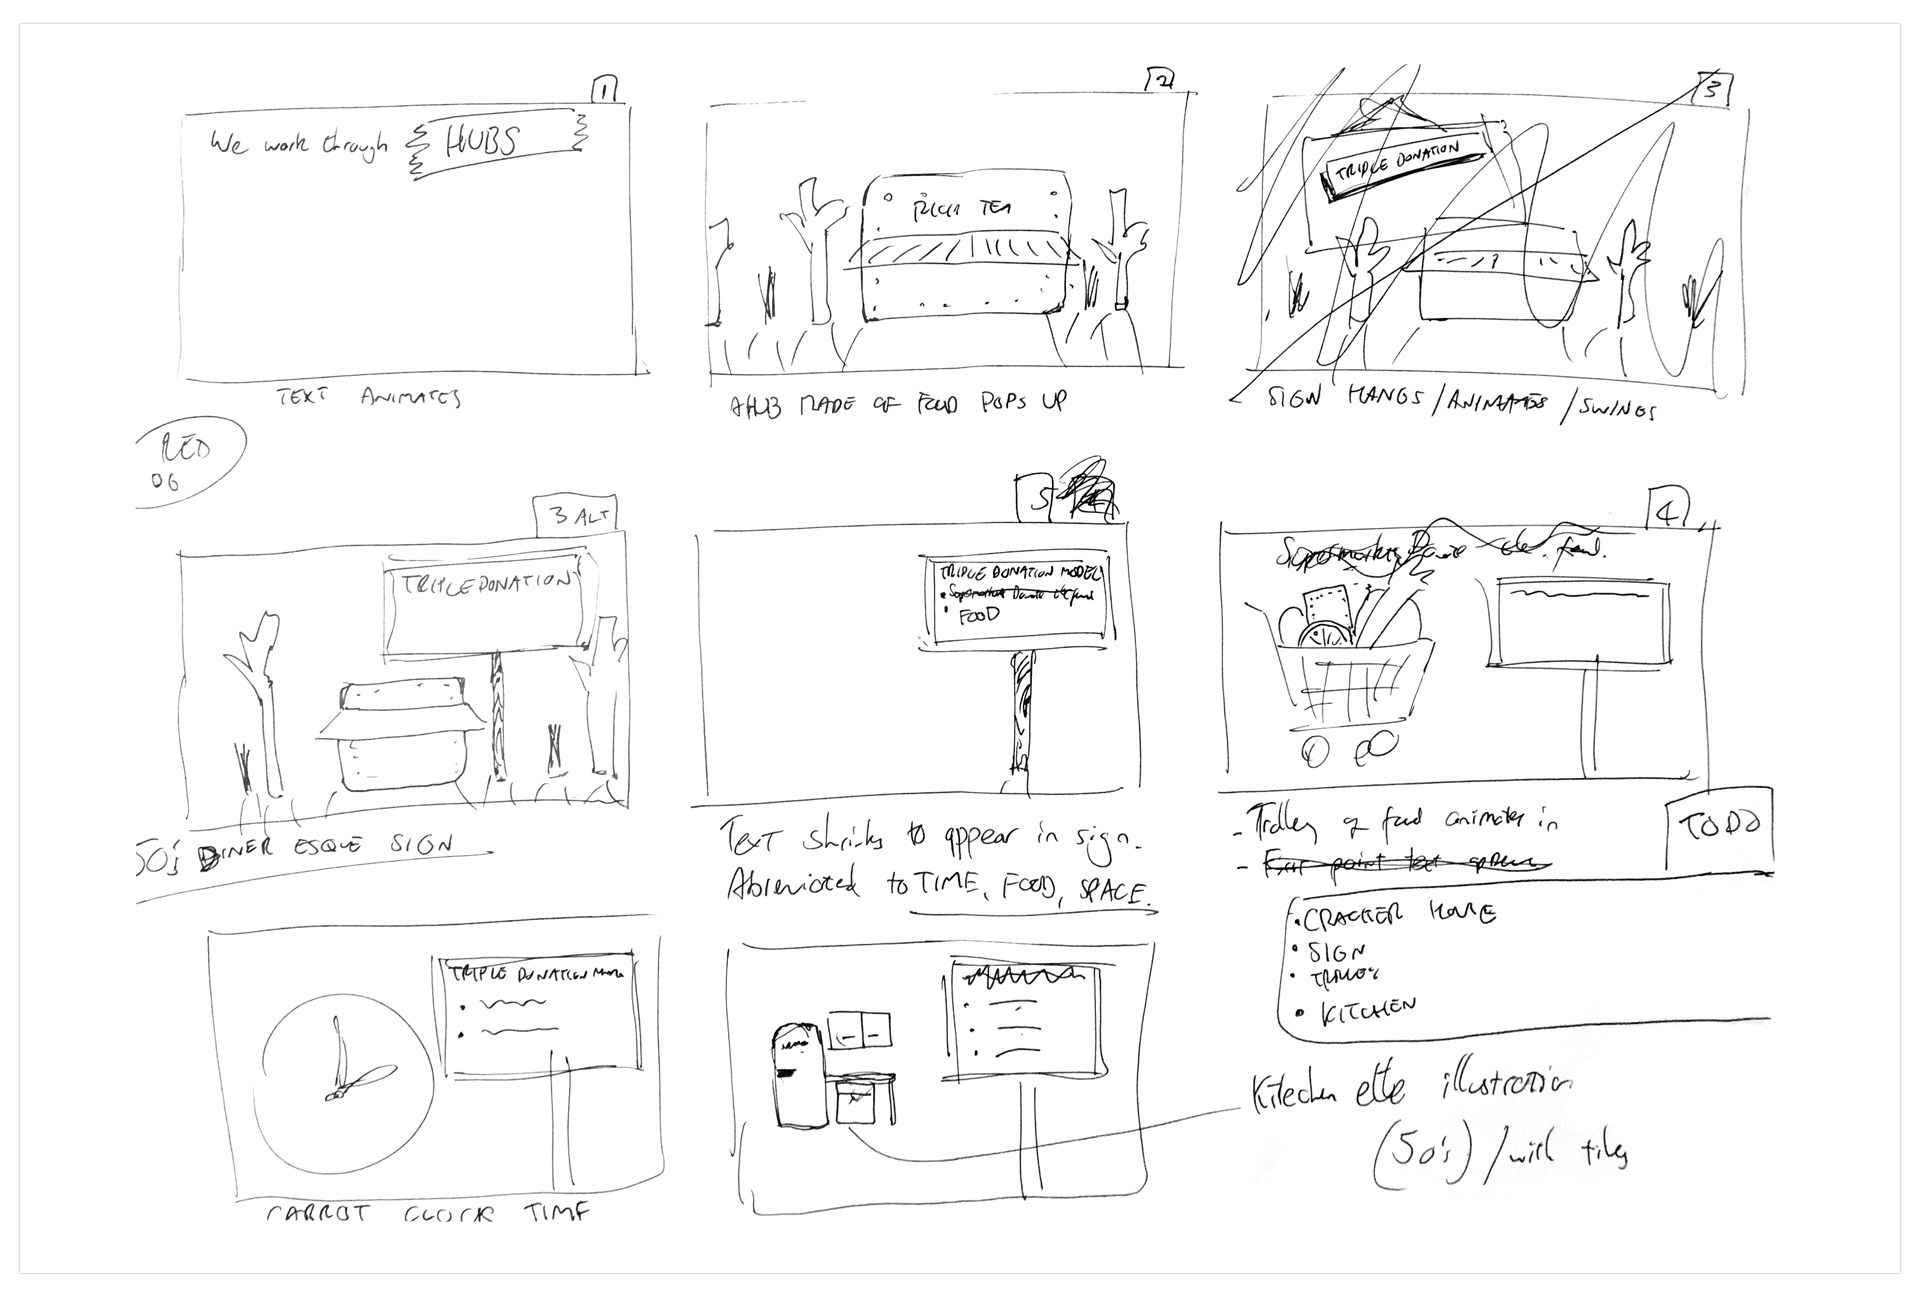 1
We work through HUBS
TEXT ANIMATES
2
RICH TEA
A HUB MADE OF FOOD POPS UP
3
TRIPLE DONATION
SIGN HANGS / ANIMATES / SWINGS
RED
06
3 ALT
TRIPLE DONATION
50's DINER ESQUE SIGN
5
TRIPLE DONATION MODEL
• Supermarket Donate
• FOOD
Text shrinks to appear in sign.
Abreviated to TIME, FOOD, SPACE.
4
Supermarkets Donate
- Trolley of food animates in
- Four point text appears
TODO
• CRACKER HOUSE
• SIGN
• TROLLEY
• KITCHEN
TRIPLE DONATION
CARROT CLOCK TIME
Kitechen ette illustration
(50's) / with tiles